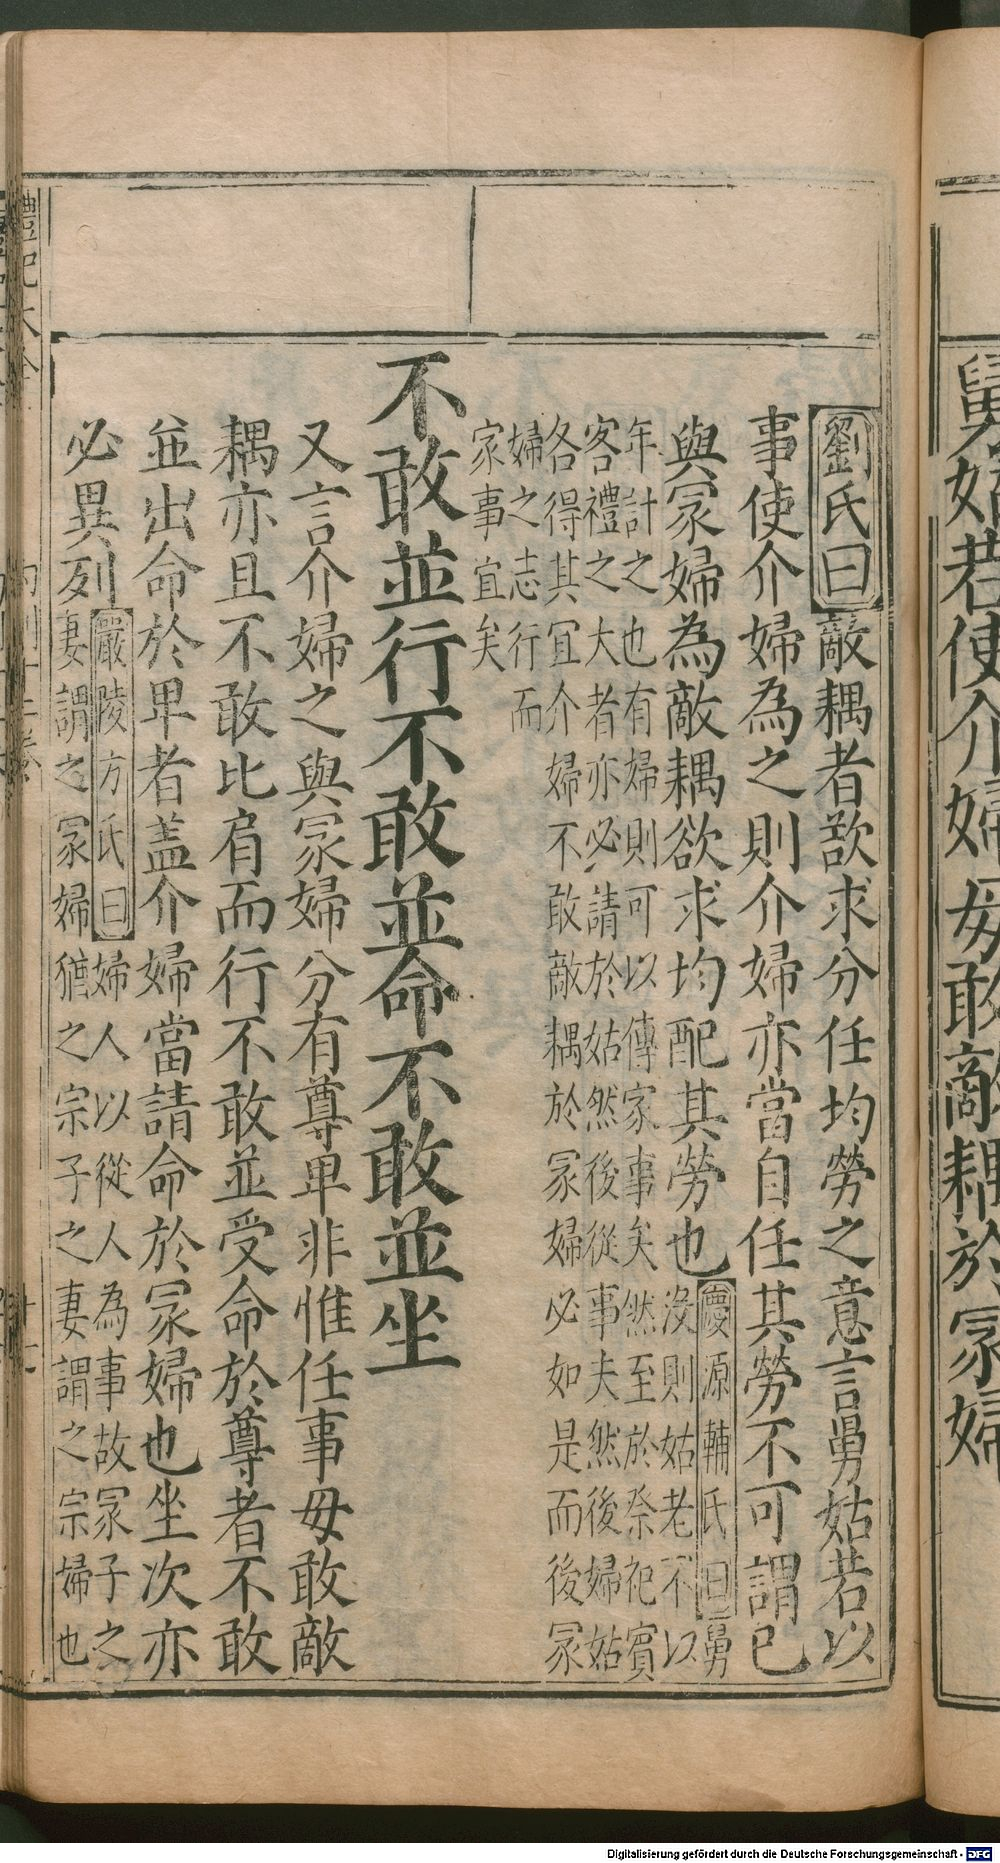 舅姑若使介婦毋敢敵耦於冢婦
劉氏曰敵耦者欲求分任均勞之意言舅姑若以
事使介婦為之則介婦亦當自任其勞不可謂已
與冢婦為敵耦欲求均配其勞也
慶源輔氏曰舅
沒則姑老不以
年計之也有婦則可以傳家事矣然至於祭祀賓
客禮之大者亦必請於姑然後從事夫然後婦姑
各得其宜介婦不敢敵耦於冢婦必如是而後冢
婦之志行而
家事宜矣
不敢並行不敢並命不敢並坐
又言介婦之與冢婦分有尊卑非惟任事毋敢敵
耦亦且不敢比肩而行不敢並受命於尊者不敢
並出命於卑者蓋介婦當請命於冢婦也坐次亦
必異列
嚴陵方氏曰婦人以從人為事故冢子之
妻謂之冢婦猶之宗子之妻謂之宗婦也
禮記大全
Digitalisierung gefördert durch die Deutsche Forschungsgemeinschaft - DFG